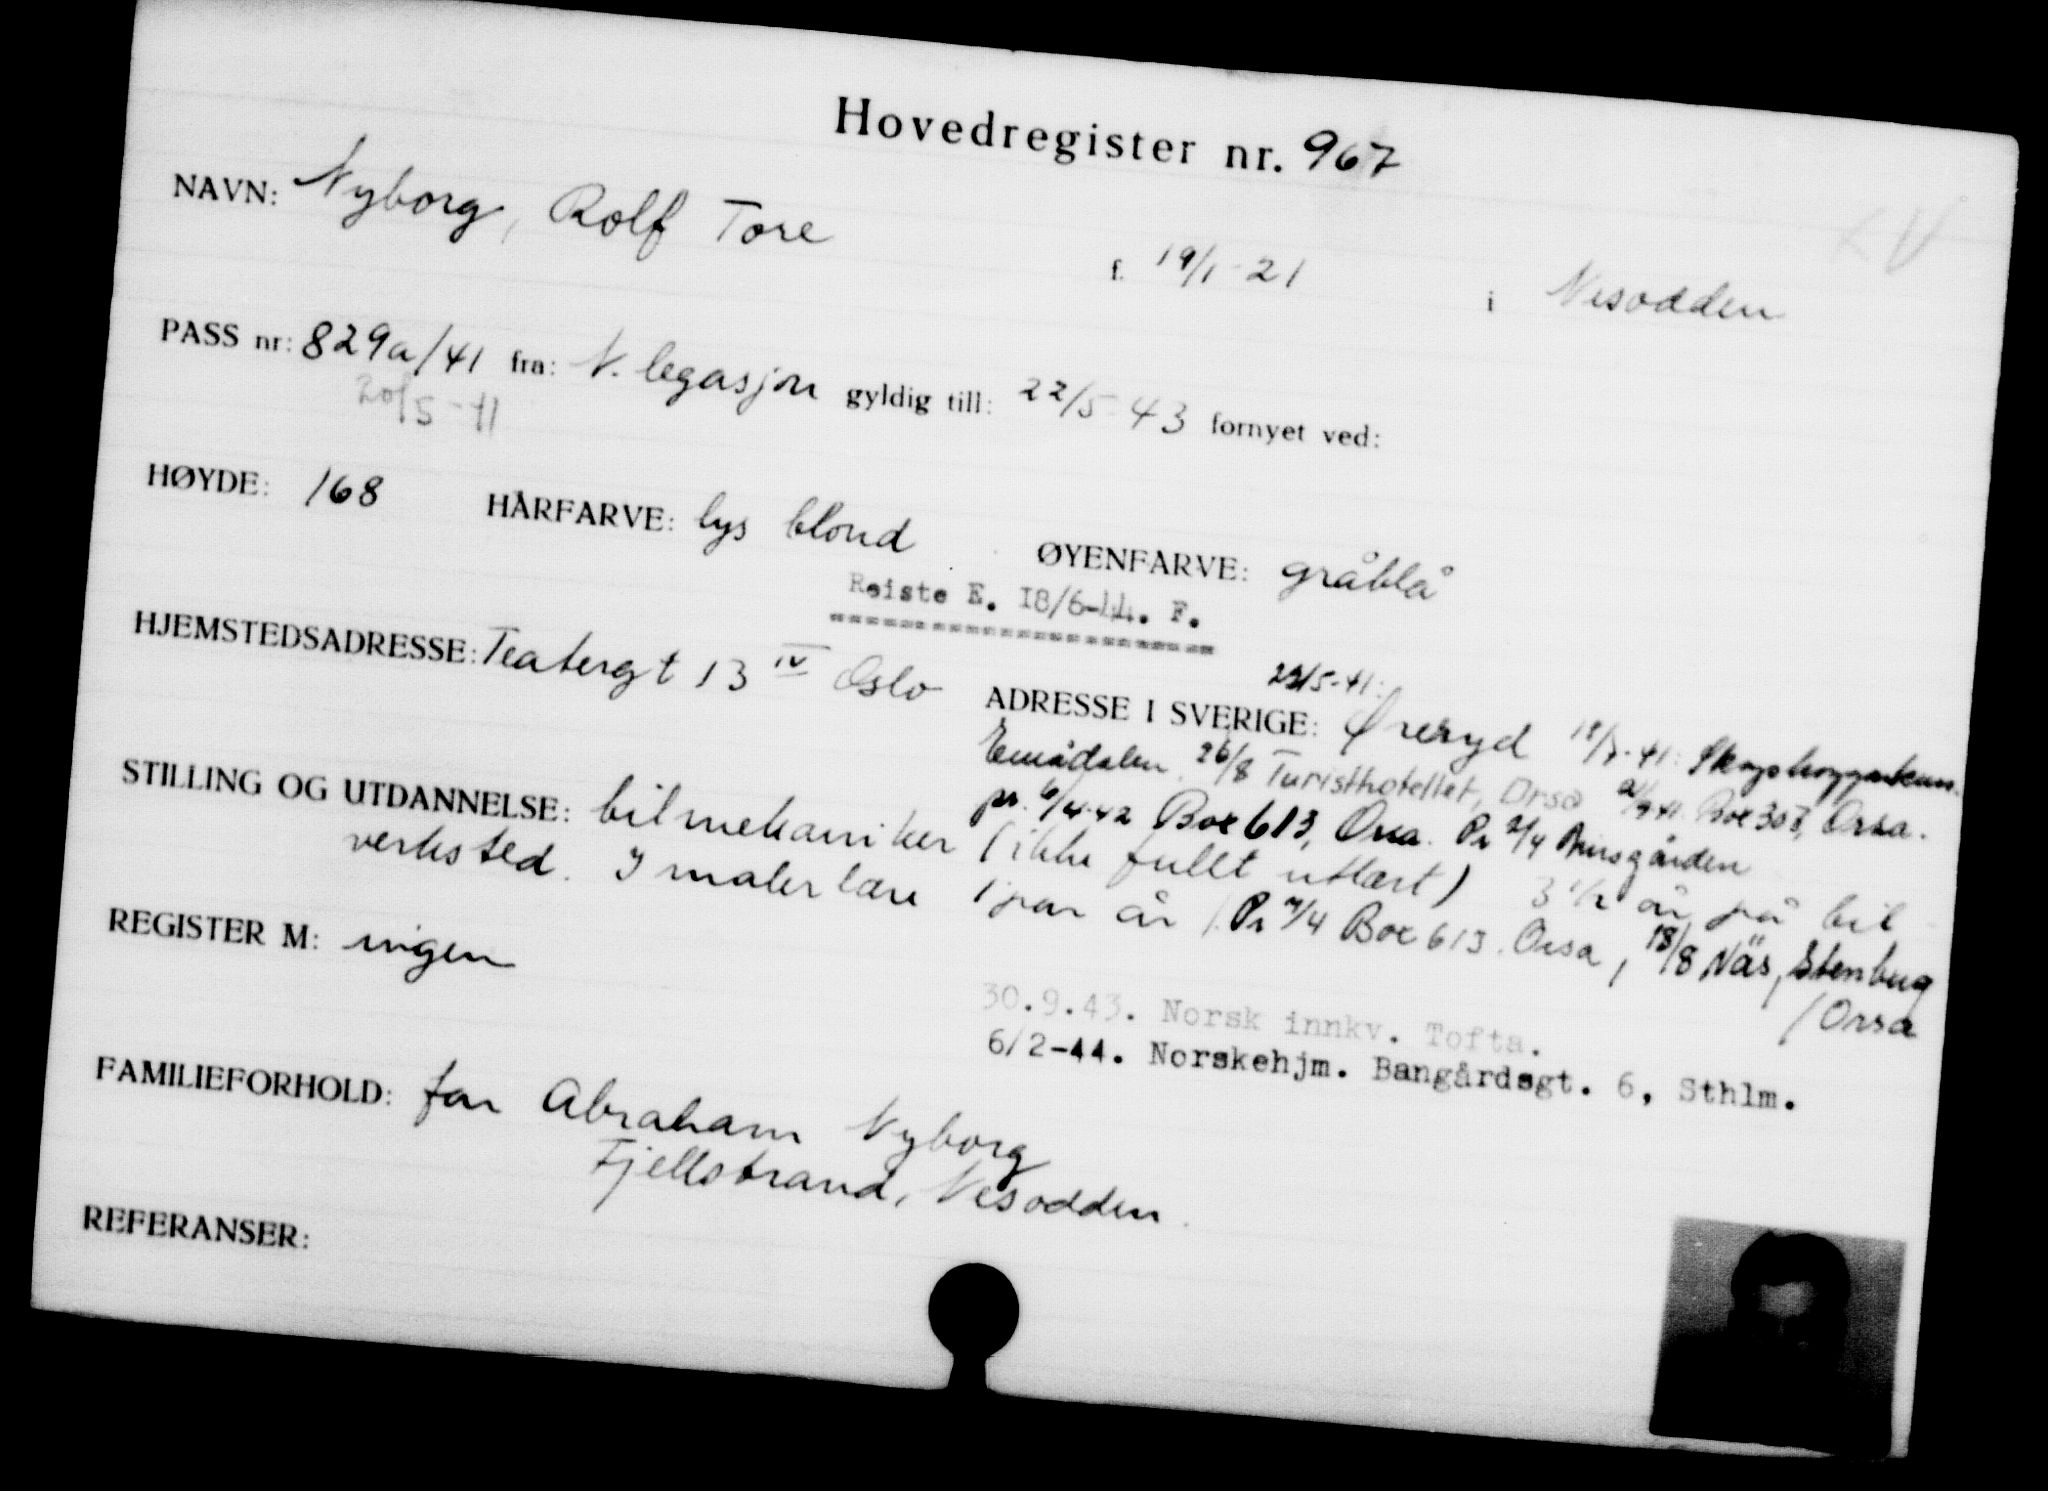 Hovedregister nr. 967
NAVN: Nyborg, Rolf Tore f. 19/1-21 i Nesodden
PASS nr: 829a/41 fra: N. legasjon gyldig till: 22/5-43 fornyet ved:
20/5-41
HØYDE: 168 HÅRFARVE: lys blond ØYENFARVE: gråblå
Reiste E. 18/6-44. F.
HJEMSTEDSADRESSE: Teatergt 13 IV Oslo
ADRESSE I SVERIGE: Øreryd
Emådalen. 26/8 Turisthotellet, Orsa Box 307, Orsa.
pr. 6/4-42 Box 613, Orsa. Pr
STILLING OG UTDANNELSE: bilmekaniker (ikke fullt utlært) 3 1/2 år på bil
verksted. I malerlære 1 par år
Pr 7/4 Box 613. Orsa, 18/8 Näs, Stenberg
/Orsa
REGISTER M: ingen
30.9.43. Norsk innkv. Tofta.
6/2-44. Norskehjm. Bangårdsgt. 6, Sthlm.
FAMILIEFORHOLD: far Abraham Nyborg
Fjellstrand, Nesodden.
REFERANSER: